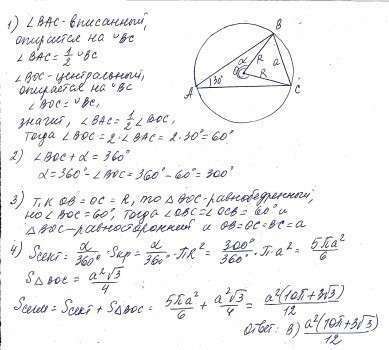 1) ∠BAC - вписанный,
опирается на ◡BC
∠BAC = 1/2 ◡BC
∠BOC - центральный,
опирается на ◡BC
∠BOC = ◡BC,
значит, ∠BAC = 1/2 ∠BOC,
тогда ∠BOC = 2·∠BAC = 2·30° = 60°
B
α
R
a
O
R
A
30°
C
2) ∠BOC + α = 360°
α = 360° - ∠BOC = 360° - 60° = 300°
3) Т.к OB = OC = R, то △BOC - равнобедренный,
но ∠BOC = 60°, тогда ∠OBC = ∠OCB = 60° и
△BOC - равносторонний и OB = OC = BC = a
4) Sсект = α/360° · Sкр = α/360° · πR² = 300°/360° · π·a² = 5πa²/6
S△BOC = a²√3/4
Sсегм = Sсект + S△BOC = 5πa²/6 + a²√3/4 = a²(10π+3√3)/12
Ответ: В) a²(10π+3√3)/12